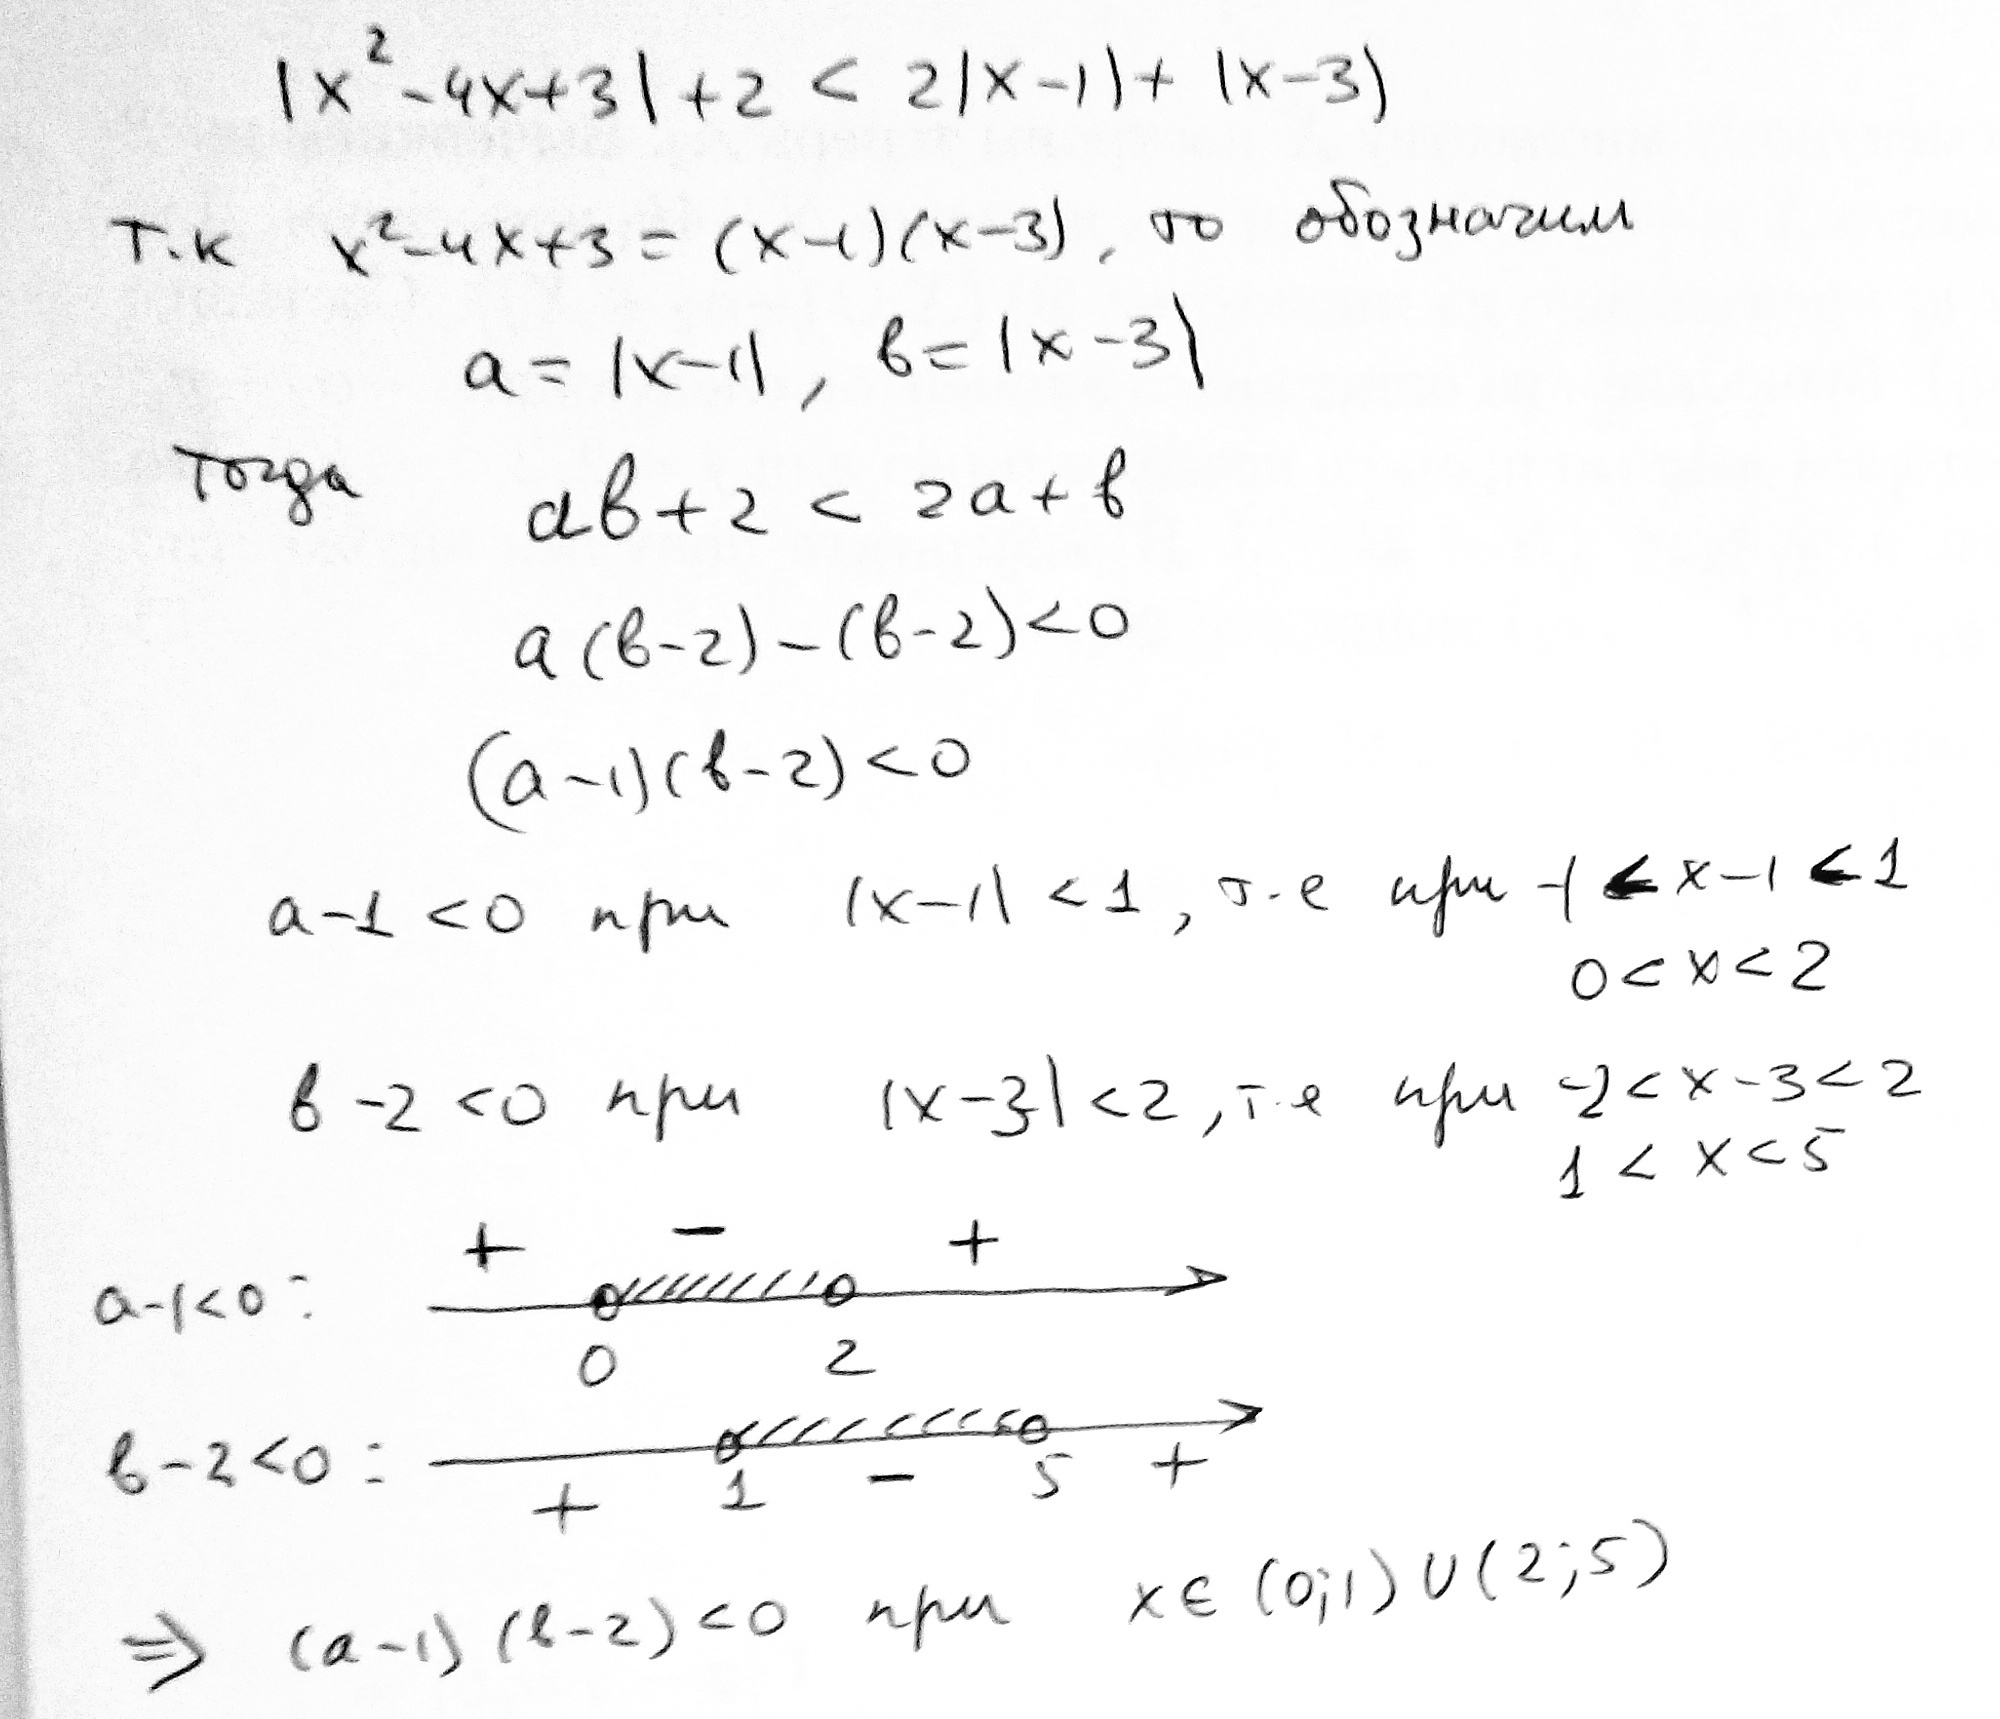 |x²-4x+3|+2 < 2|x-1|+|x-3|
т.к x²-4x+3=(x-1)(x-3), то обозначим
a=|x-1|, в=|x-3|
тогда aв+2 < 2a+в
a(в-2)-(в-2)<0
(a-1)(в-2)<0
a-1<0 при |x-1|<1, т.е при -1<x-1<1
0<x<2
в-2<0 при |x-3|<2, т.е при -2<x-3<2
1<x<5
+ - +
a-1<0:
0 2
в-2<0:
+ 1 - 5 +
⇒ (a-1)(в-2)<0 при x∈(0;1)∪(2;5)